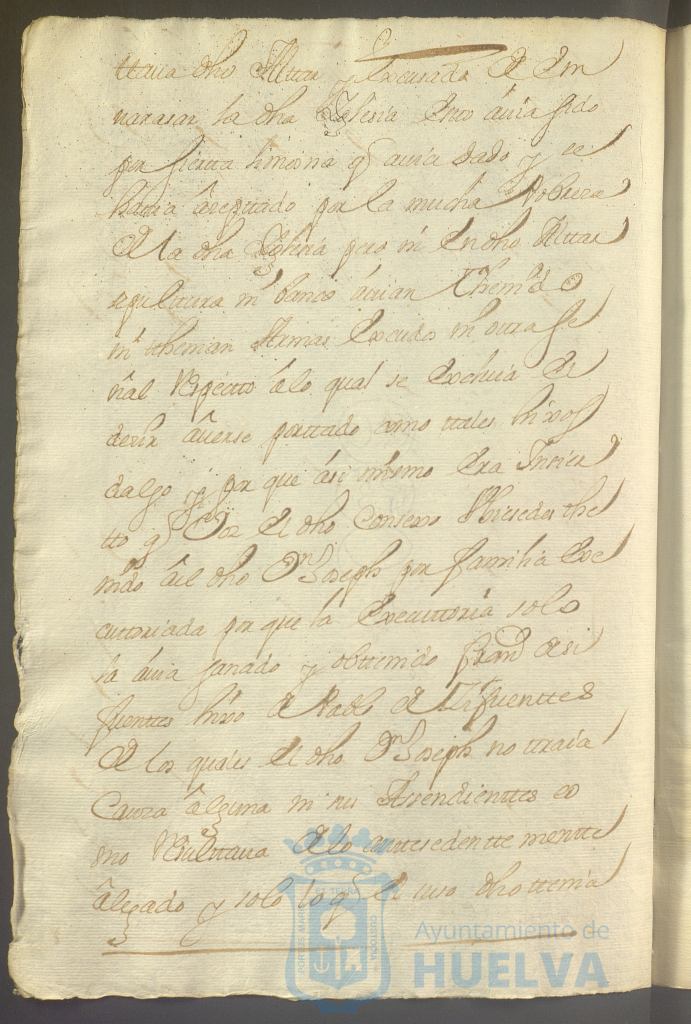 ttaua dho Alttar y Escusada de Em
uarasar la dha Yglesia Enco auia sido
por sierta limosna q auia dado y se
hauia âseptado por la mucha Pobresa
de la dha Yglesia pero ni En dho Alttar
sepulttura ni banco âuian Thenido
ni tthenian Armas Escudo ni otra se
ñal Respectto âlo qual se Excluia el
desir âuerse porttado como ttales hixos
dalgo y por que âsi mismo Era Yncier
tto q Por el dho Consexo se the
nido âel dho Dn Joseph por familia Exe
cuttoriada por que la Executtoria solo
la âuia ganado y obttenido Franco desi
fuenttes hixo de Pablo de Zifuenttes
de los quales el dho Dn Joseph no ttraia
Causa âlguna ni sus Asendienttes co
mo Resulttaua de lo anttesedentte mentte
âlegado y solo lo q el suso dho ttenia
Ayuntamiento de
HUELVA